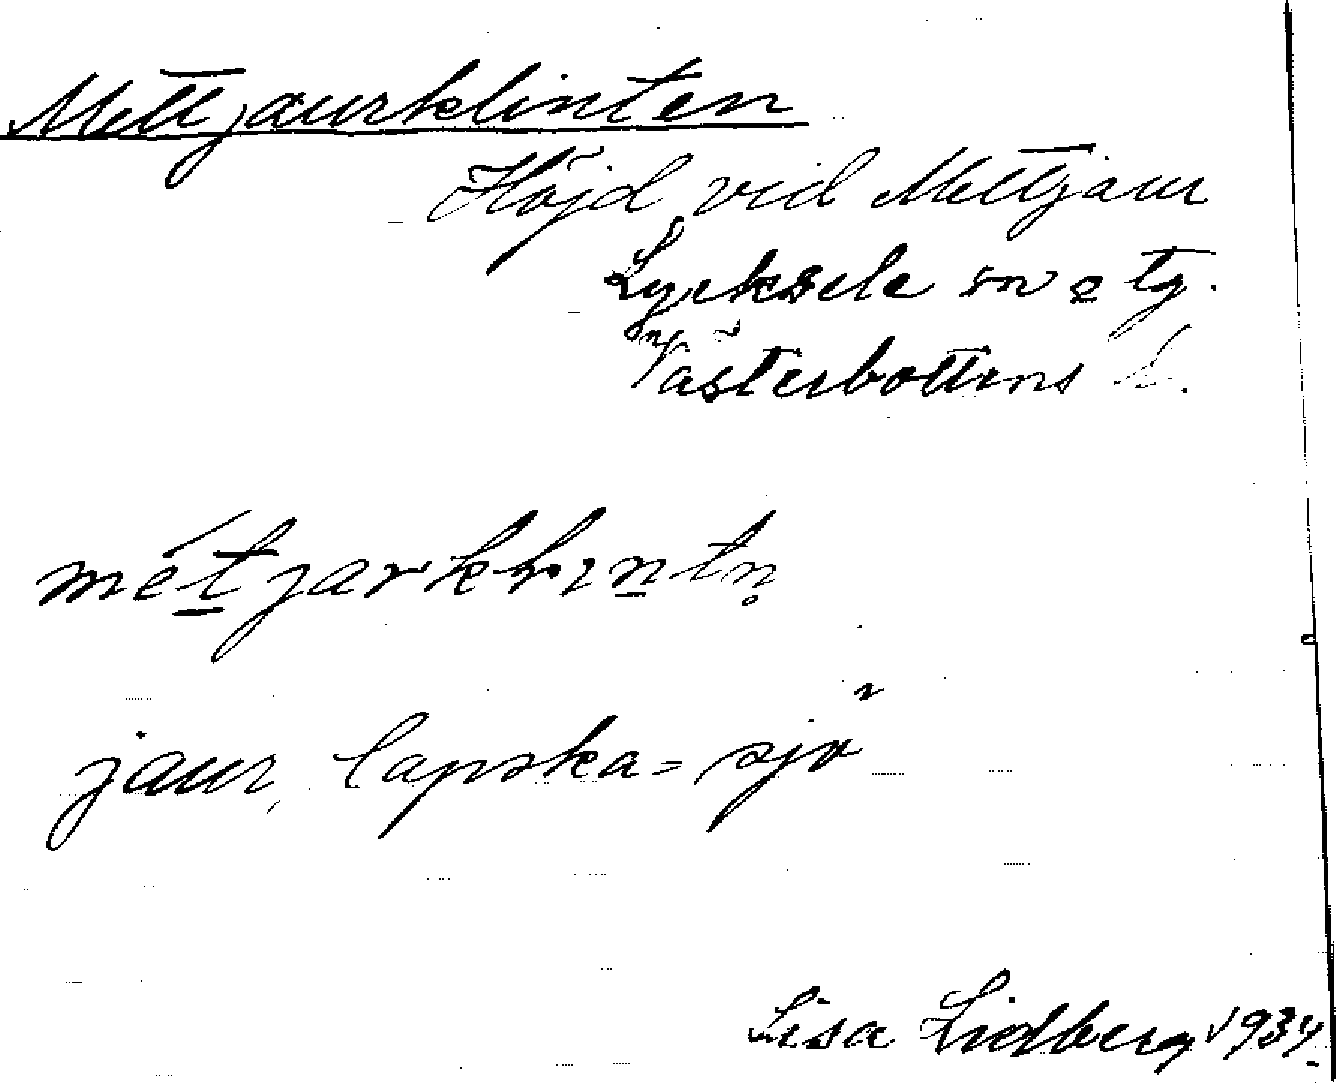 Mettjaurklinten
Höjd vid Mettjaur
Lycksele sn o tg.
Västerbottens l.
métjarklintn̥
jaur, lapska = sjö
Lisa Lidberg 1934.